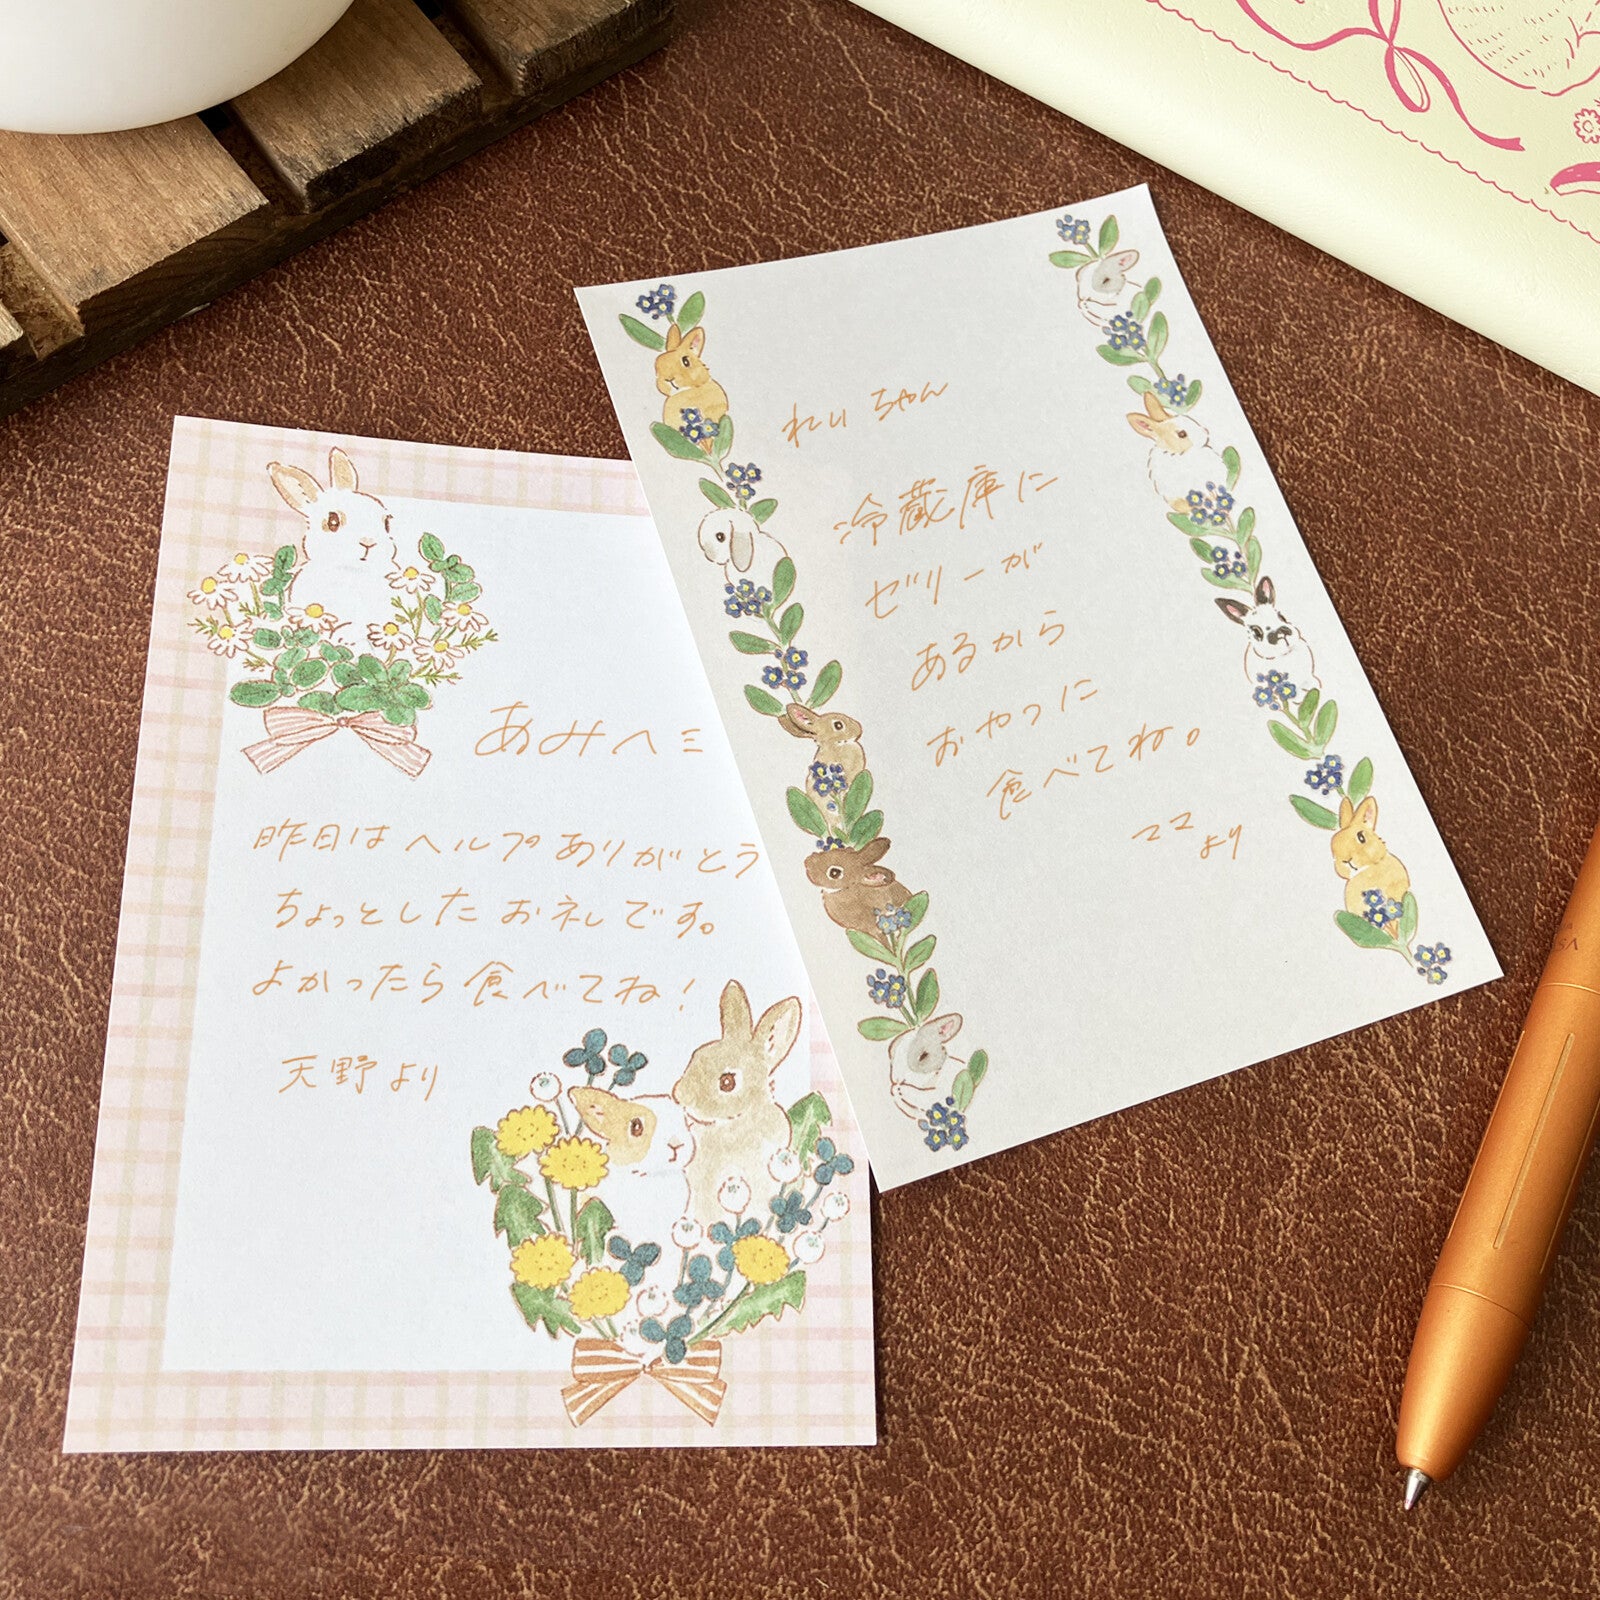 あみへ
昨日はヘルプありがとう
ちょっとしたお礼です。
よかったら食べてね!
天野より
れいちゃん
冷蔵庫に
ゼリーが
あるから
おやつに
食べてね。
ママより